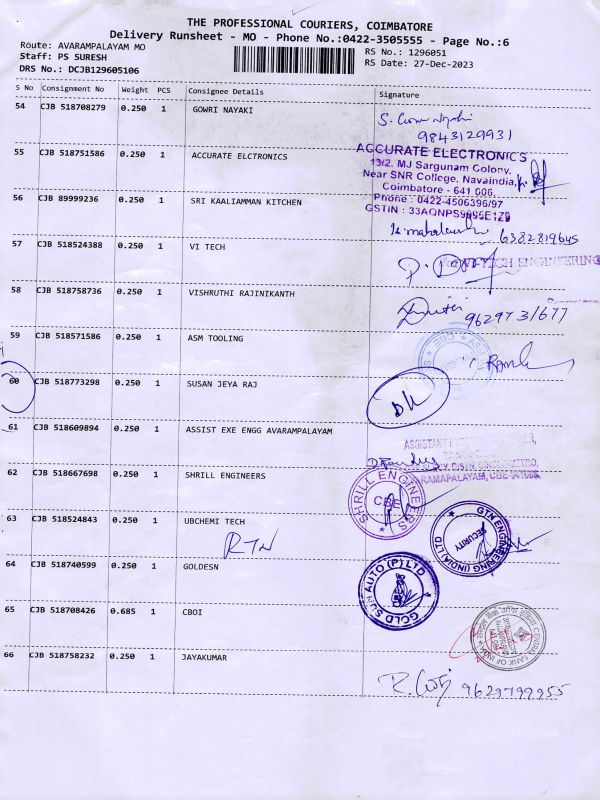 THE PROFESSIONAL COURIERS, COIMBATORE
Delivery Runsheet - MO - Phone No.:0422-3505555 - Page No.:6
Route: AVARAMPALAYAM MO
RS No.: 1296051
Staff: PS SURESH
RS Date: 27-Dec-2023
DRS No.: DCJB129605106
S No Consignment No Weight PCS Consignee Details Signature
54 CJB 518708279 0.250 1 GOWRI NAYAKI
9843129931
55 CJB 518751586 0.250 1 ACCURATE ELCTRONICS
ACCURATE ELECTRONICS
13/2. MJ Sargunam Colony,
Near SNR College, Navaindia,
Coimbatore - 641 006.
Phone : 0422-4506396/97
56 CJB 89999236 0.250 1 SRI KAALIAMMAN KITCHEN
6382819645
57 CJB 518524388 0.250 1 VI TECH
ENGINEERING
58 CJB 518758736 0.250 1 VISHRUTHI RAJINIKANTH
9629731677
59 CJB 518571586 0.250 1 ASM TOOLING
60 CJB 518773298 0.250 1 SUSAN JEYA RAJ
61 CJB 518609894 0.250 1 ASSIST EXE ENGG AVARAMPALAYAM
62 CJB 518667698 0.250 1 SHRILL ENGINEERS
SHRILL ENGINEERS
CBE
63 CJB 518524843 0.250 1 UBCHEMI TECH
RTN
GTN ENGINEERING (INDIA) LTD
SECURITY
64 CJB 518740599 0.250 1 GOLDESN
GOLD SUN AUTO (P) LTD
65 CJB 518708426 0.685 1 CBOI
CENTRAL BANK OF INDIA
66 CJB 518758232 0.250 1 JAYAKUMAR
9629799255